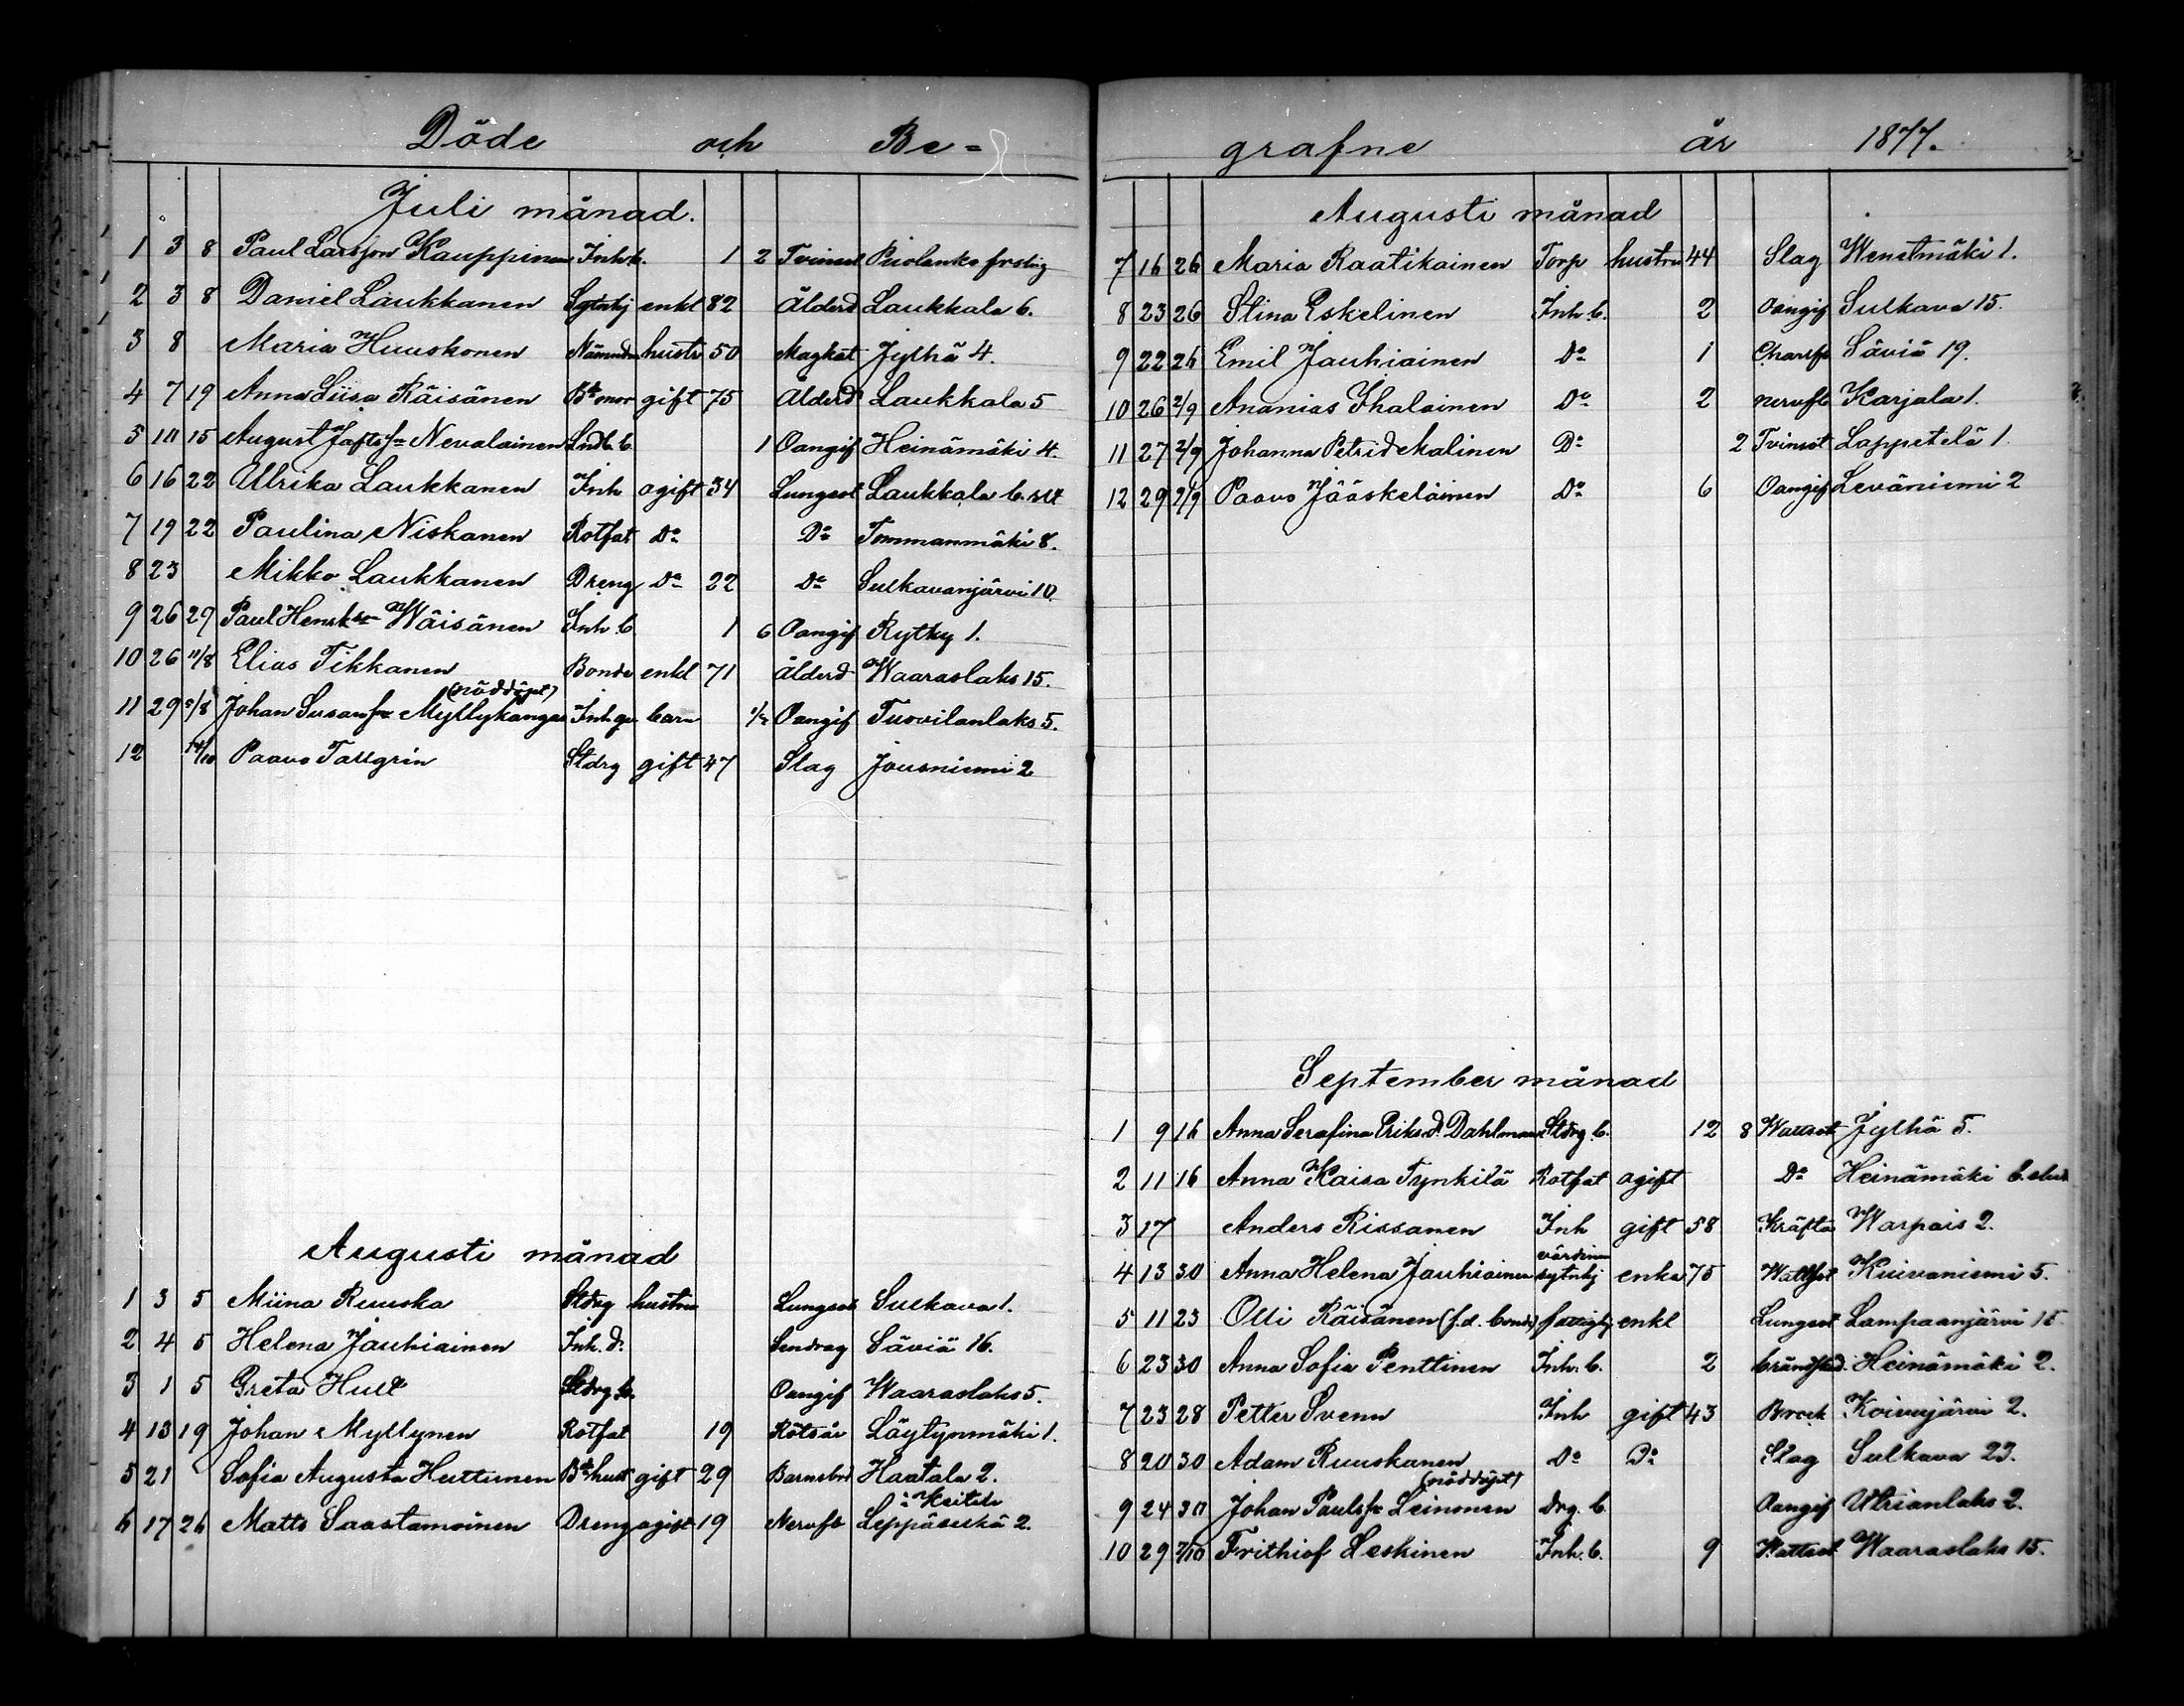 Döde och Be=
Juli månad.
1 3 8 Paul Larsson Kauppinen Inh. b. 1 2 Tvinsot Piolanko frslng
2 3 8 Daniel Laukkanen Sytnhj enkl 82 Ålderd Laukkala 6.
3 8 Maria Huuskonen Nämndm hustr 50 Magkat Jylhä 4.
4 7 19 Anna Liisa Räisänen Bd mor gift 75 Ålderd Laukkala 5
5 10 15 August Jafts sn Nevalainen Lndb b 1 Oangif Heinämäki 4.
6 16 22 Ullrika Laukkanen Inh ogift 34 Lungsot Laukkala
7 19 22 Paulina Niskanen Rotfat Do Do Tommanmäki 8.
8 23 Mikko Laukkanen Dreng Do 22 Do Sulkavanjärvi 10.
9 26 29 Paul Henrks sn Wäisänen Inh b 1 6 Oangif Rytky 1.
10 26 11/8 Elias Tikkanen Bonde enkl 71 Ålderd Waaraslaks 15.
(nöddöpt)
11 29 5/8 Johan Susans sn Myllykangas Inh qv barn 1/2 Oangif Tuovilanlaks 5.
12 14/10 Paavo Tallgrin Stdrg gift 47 Slag Jousniemi 2
Augusti månad
1 3 5 Miina Ruuska Stdrg hustru Lungsot Sulkava 1.
2 4 5 Helena Jauhiainen Inh. d. Lendrag Säviä 16.
3 1 5 Greta Hult Stdrg b. Oangif Waaraslaks 5.
4 13 19 Johan Myllynen Rotfat 19 Rötsår Läytynmäki 1.
5 21 Sofia Augusta Huttunen Bd hust gift 29 Barnsbrd Haatala 2.
i Keitele
6 17 26 Matts Saastamoinen Dreng ogift 19 Nervfb Leppäselkä 2.
grafne år 1877.
Augusti månad
7 16 26 Maria Raatikainen Torp hustru 44 Slag Wenetmäki 1.
8 23 26 Stina Eskelinen Inh. b. 2 Oangif Sulkava 15.
9 22 26 Emil Jauhiainen Do 1 Charlfb Säviä 19.
10 26 2/9 Ananias Ihalainen Do 2 nervfb Karjala 1.
11 27 2/9 Johanna Petrid Malinen Do 2 Tvinsot Lappetelä 1.
12 29 2/9 Paavo Jääskeläinen Do 6 Oangif Leväniemi 2
September månad
1 9 16 Anna Serafina Eriksd. Dahlman Stdrg b. 12 8 Wattsot Jylhä 5.
2 11 16 Anna Kaisa Tynkilä Rotfat ogift Do Heinämäki
3 17 Anders Rissanen Inh gift 58 Kräfta Warpais 2.
värdinn
4 13 30 Anna Helena Jauhiainen sytnhj enka 75 Wattsot Kuivaniemi 5.
5 11 23 Olli Räisänen (f.d. bonde) fattighj enkl Lungsot Lampaanjärvi 15.
6 23 30 Anna Sofia Penttinen Inh. b. 2 brändskad. Heinämäki 2.
7 23 28 Petter Svenn Inh gift 43 Brock Koivujärvi 2.
8 20 30 Adam Ruuskanen Do Do Slag Sulkava 23.
(nöddöpt)
9 24 30 Johan Pauls sn Leinonen Drg. b. Oangif Utrianlaks 2.
10 29 7/10 Frithiof Leskinen Inh. b. 9 Wattsot Waaraslaks 15.